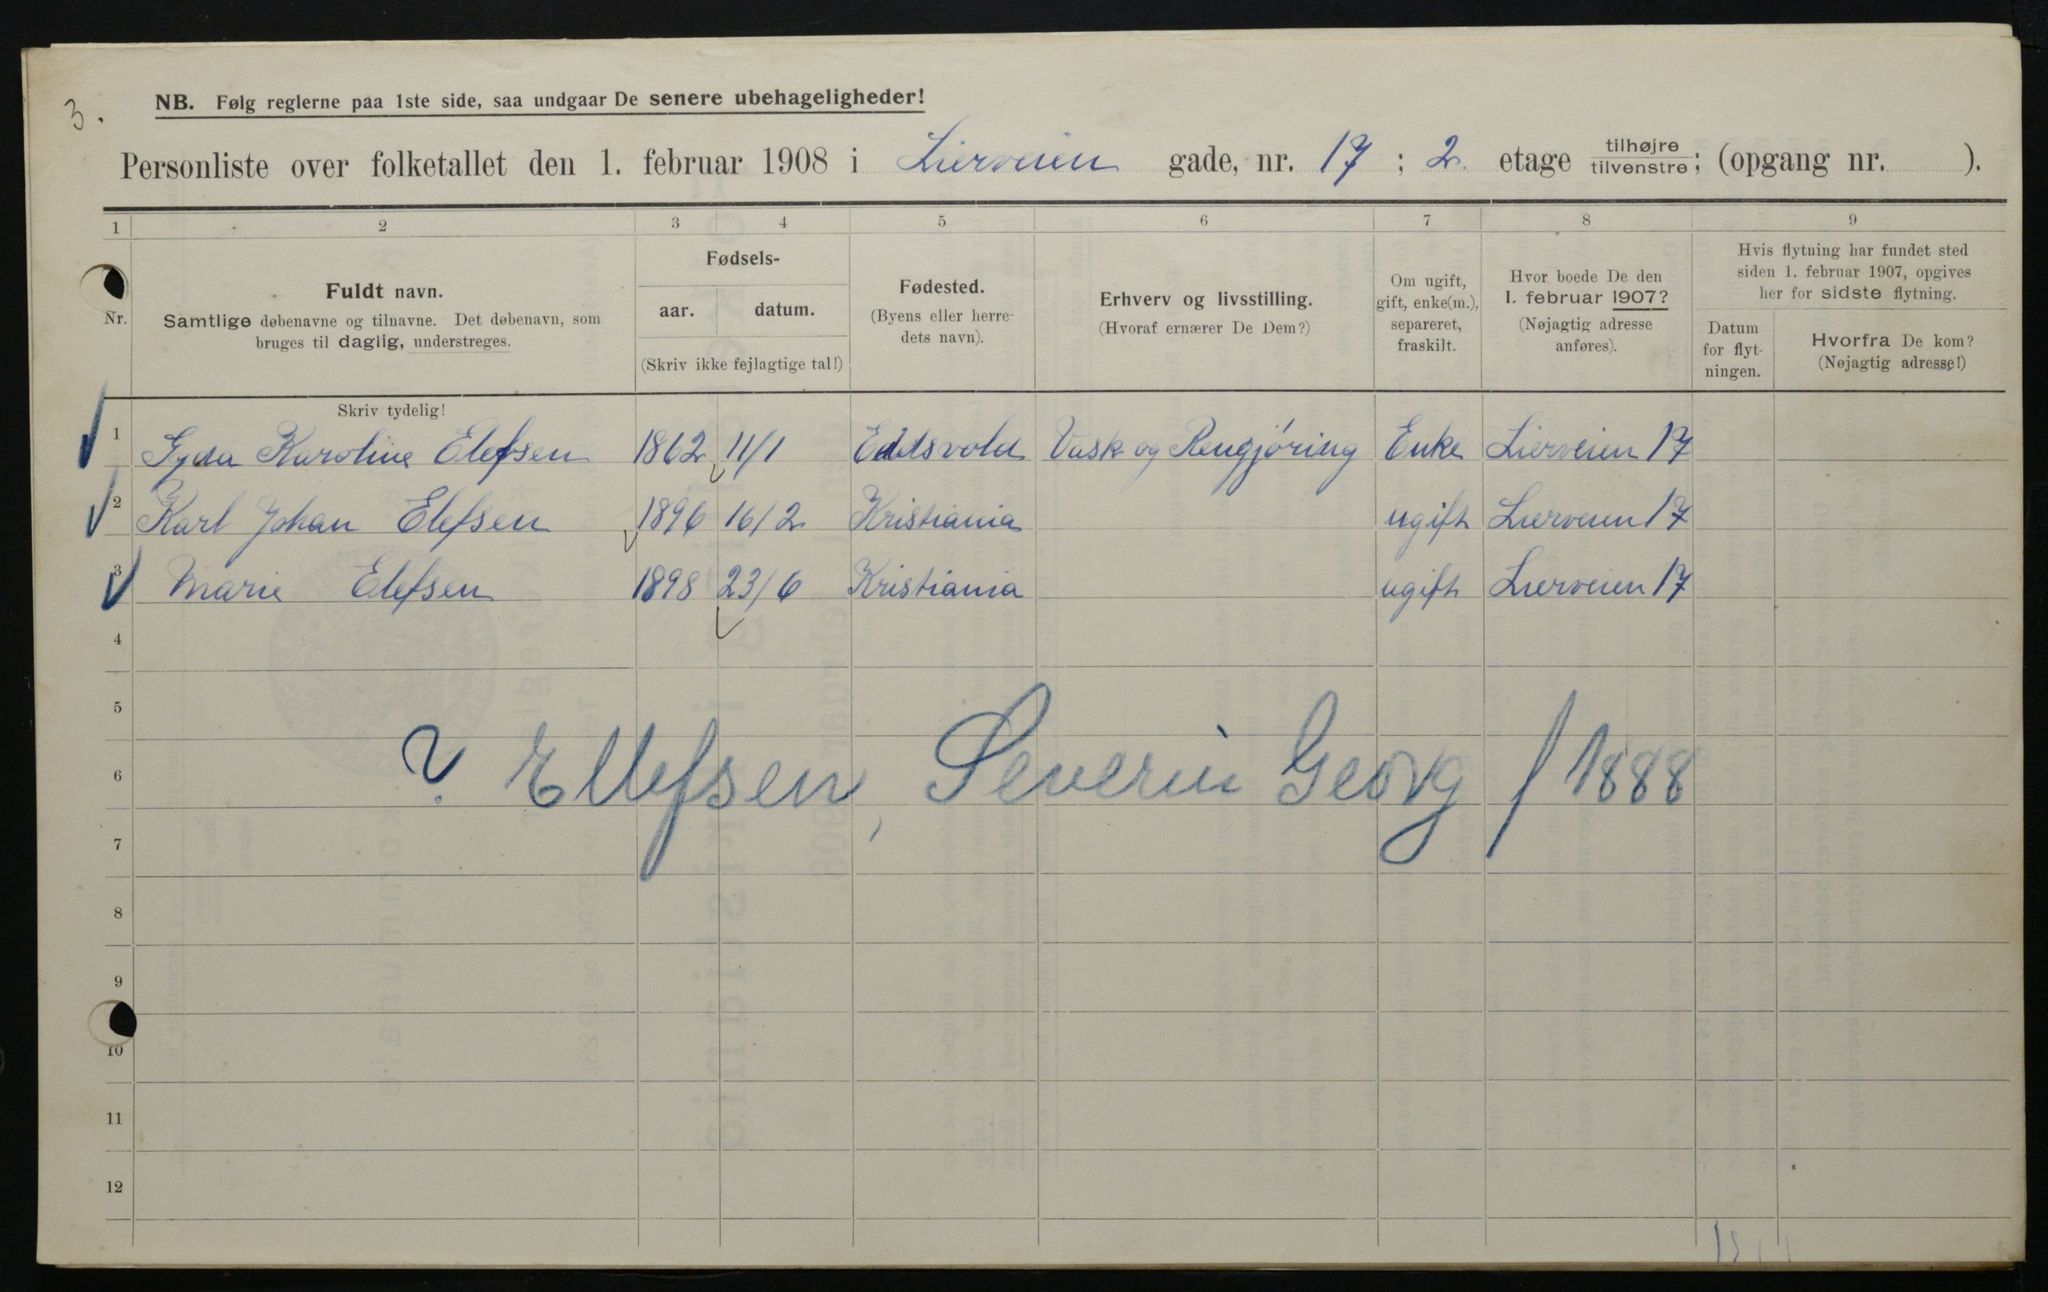 3.
NB. Følg reglerne paa 1ste side, saa undgaar De senere ubehageligheder!
Personliste over folketallet den 1. februar 1908 i Lierveien gade, nr. 17; 2. etage tilhøjre/tilvenstre; (opgang nr. ).
1 2 3 4 5 6 7 8 9
Nr.
Fuldt navn.
Samtlige døbenavne og tilnavne. Det døbenavn, som
bruges til daglig, understreges.
Fødsels-
aar. datum.
(Skriv ikke fejlagtige tal!)
Fødested.
(Byens eller herre-
dets navn).
Erhverv og livsstilling.
(Hvoraf ernærer De Dem?)
Om ugift,
gift, enke(m.),
separeret,
fraskilt.
Hvor boede De den
1. februar 1907?
(Nøjagtig adresse
anføres).
Hvis flytning har fundet sted
siden 1. februar 1907, opgives
her for sidste flytning.
Datum
for flyt-
ningen.
Hvorfra De kom?
(Nøjagtig adresse!)
Skriv tydelig!
1 Gyda Karoline Elefsen 1862 11/1 Eidsvold Vask og Rengjøring Enke Lierveien 17
2 Karl Johan Elefsen 1896 16/2 Kristiania ugift Lierveien 17
3 Marie Elefsen 1898 23/6 Kristiania ugift Lierveien 17
4
5
6 ? Ellefsen, Severin Georg f 1888
7
8
9
10
11
12